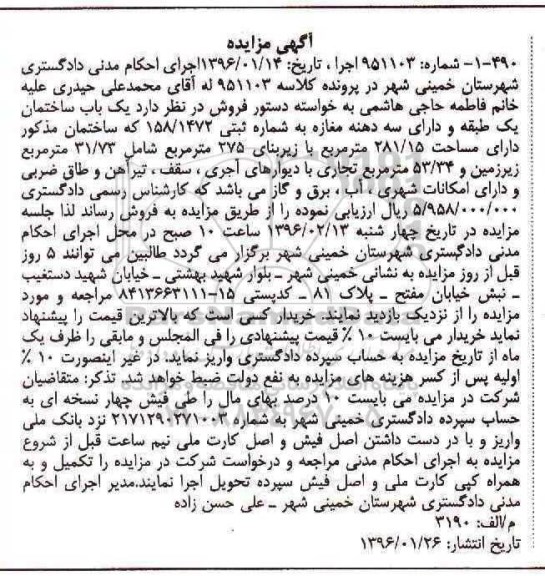 آگهی مزایده
۴۹۰-۱- شماره: ۹۵۱۱۰۳ اجرا ، تاریخ: ۱۳۹۶/۰۱/۱۴اجرای احکام مدنی دادگستری
شهرستان خمینی شهر در پرونده کلاسه ۹۵۱۱۰۳ له آقای محمدعلی حیدری علیه
خانم فاطمه حاجی هاشمی به خواسته دستور فروش در نظر دارد یک باب ساختمان
یک طبقه و دارای سه دهنه مغازه به شماره ثبتی ۱۵۸/۱۴۷۲ که ساختمان مذکور
دارای مساحت ۲۸۱/۱۵ مترمربع با زیربنای ۲۷۵ مترمربع شامل ۳۱/۷۳ مترمربع
زیرزمین و ۵۳/۳۴ مترمربع تجاری با دیوارهای آجری ، سقف ، تیرآهن و طاق ضربی
و دارای امکانات شهری ، آب ، برق و گاز می باشد که کارشناس رسمی دادگستری
۵/۹۵۸/۰۰۰/۰۰۰ ریال ارزیابی نموده را از طریق مزایده به فروش رساند لذا جلسه
مزایده در تاریخ چهار شنبه ۱۳۹۶/۰۲/۱۳ ساعت ۱۰ صبح در محل اجرای احکام
مدنی دادگستری شهرستان خمینی شهر برگزار می گردد طالبین می توانند ۵ روز
قبل از روز مزایده به نشانی خمینی شهر ـ بلوار شهید بهشتی ـ خیابان شهید دستغیب
ـ نبش خیابان مفتح ـ پلاک ۸۱ ـ کدپستی ۱۵-۸۴۱۳۶۶۳۱۱۱ مراجعه و مورد
مزایده را از نزدیک بازدید نمایند. خریدار کسی است که بالاترین قیمت را پیشنهاد
نماید خریدار می بایست ۱۰ ٪ قیمت پیشنهادی را فی المجلس و مابقی را ظرف یک
ماه از تاریخ مزایده به حساب سپرده دادگستری واریز نماید، در غیر اینصورت ۱۰ ٪
اولیه پس از کسر هزینه های مزایده به نفع دولت ضبط خواهد شد. تذکر: متقاضیان
شرکت در مزایده می بایست ۱۰ درصد بهای مال را طی فیش چهار نسخه ای به
حساب سپرده دادگستری خمینی شهر به شماره نزد بانک ملی
واریز و با در دست داشتن اصل فیش و اصل کارت ملی نیم ساعت قبل از شروع
مزایده به اجرای احکام مدنی مراجعه و درخواست شرکت در مزایده را تکمیل و به
همراه کپی کارت ملی و اصل فیش سپرده تحویل اجرا نمایند.مدیر اجرای احکام
مدنی دادگستری شهرستان خمینی شهر ـ علی حسن زاده
م/الف: ۳۱۹۰
تاریخ انتشار: ۱۳۹۶/۰۱/۲۶